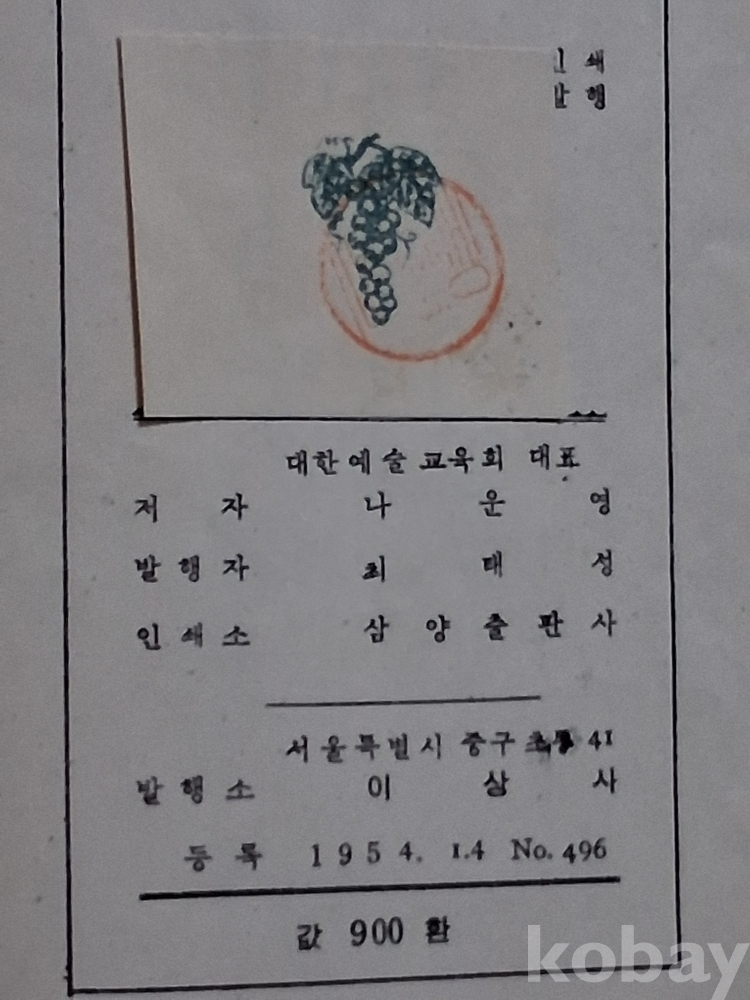 인 쇄
발 행
대한예술교육회 대표
저 자 나 운 영
발 행 자 최 태 성
인 쇄 소 삼 양 출 판 사
서울특별시 중구 초동 41
발 행 소 이 삼 사
등 록 1954. 1.4 No. 496
값 900 환
kobay